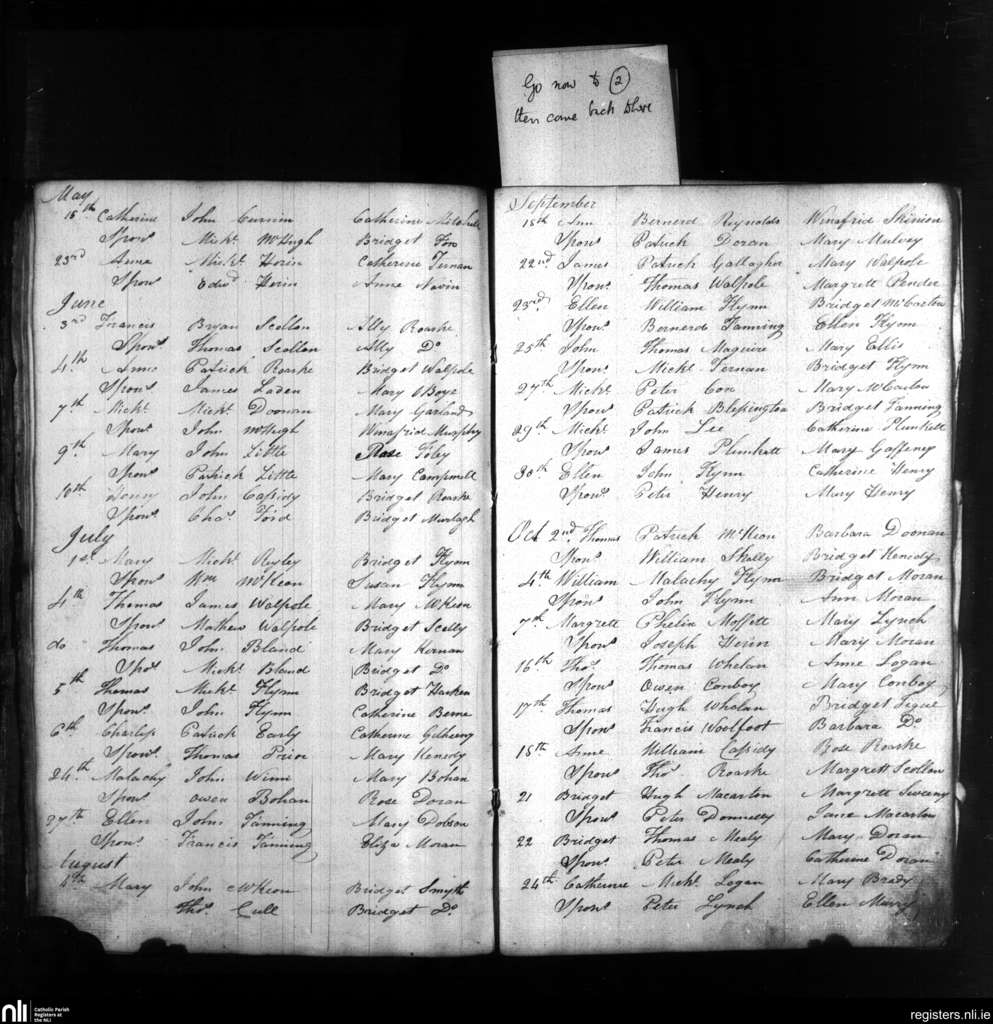 Go now to 2
then come back there
May
15th Catherine John Curran Catherine Mitchell
Spons Michl McHugh Bridget Fox
23rd Anne Michl Horin Catherine Tiernan
Spons Edwd Herin Anne Navin
June
3rd Francis Bryan Scollon Ally Roarke
Spons Thomas Scollon Ally Do
4th Anne Patrick Roarke Bridget Walpole
Spons James Laden Mary OBoye
7th Michl Michl Doonan Mary Garland
Spons John McHugh Winafrid Murphy
9th Mary John Little Rose Foley
Spons Patrick Little Mary Campwell
10th John Cassidy Bridget Roarke
Spons Chas Ford Bridget Murtagh
July
1st Mary Michl Reyley Bridget Flynn
Spons Wm McKeon Susan Flynn
4th Thomas James Walpole Mary McKeon
Spons Mathew Walpole Bridget Scelly
do Thomas John Bland Mary Kernan
Spos Michl Bland Bridget Do
5th Thomas Michl Flynn Bridget Harken
Spons John Flynn Catherine Berne
6th Charles Patrick Early Catherine
Spons Thomas Prior Mary Kenedy
24th Malachy John Winn Mary Bohan
Spons Owen Bohan Rose Doran
27th Ellen John Fanning Mary Dobson
Spons Francis Fanning Eliza Moran
August
Mary John McKeon Bridget Smyth
Thos Cull Bridget Do
September
18th Ann Bernerd Reynolds Winafrid
Spons Patrick Doran Mary Mulvey
22nd James Patrick Gallagher Mary Walpole
Spons Thomas Walpole Margrett Pender
23rd Ellen William Flynn Bridget McCartan
Spons Bernerd Fanning Ellen Flynn
25th John Thomas Maguire Mary Ellis
Spons Michl Ternan Bridget Flynn
27th Michl Peter Cox Mary McCarton
Spons Patrick Blessington Bridget Fanning
29th Michl John Lee Catherine Plunkett
Spons James Plunkett Mary Gaffeney
30th Ellen John Flynn Catherine Henry
Spons Peter Henry Mary Henry
Oct 2nd Thomas Patrick McKeon Barbara Doonan
Spons William Skally Bridget Kenedy
4th William Malachy Flynn Bridget Moran
Spons John Flynn Ann Moran
7th Margrett Phelix Moffett Mary Lynch
Spons Joseph Herin Mary Moran
16th Thos Thomas Whelan Anne Logan
Spons Owen Conboy Mary Conboy
17th Thomas Hugh Whelan Bridget Tigue
Spons Francis Woolfoot Barbara Do
18th Anne William Cassidy Rose Roarke
Spons Thos Roarke Margrett Scollon
21 Bridget Hugh Macarton Margrett Sweeny
Spons Peter Donnelly Jane Macarton
22 Bridget Thomas Mealy Mary Doran
Spons Peter Mealy Catherine Doran
24th Catherine Michl Logan Mary Brady
Spons Peter Lynch Ellen Murry
nli Catholic Parish Registers at the NLI
registers.nli.ie